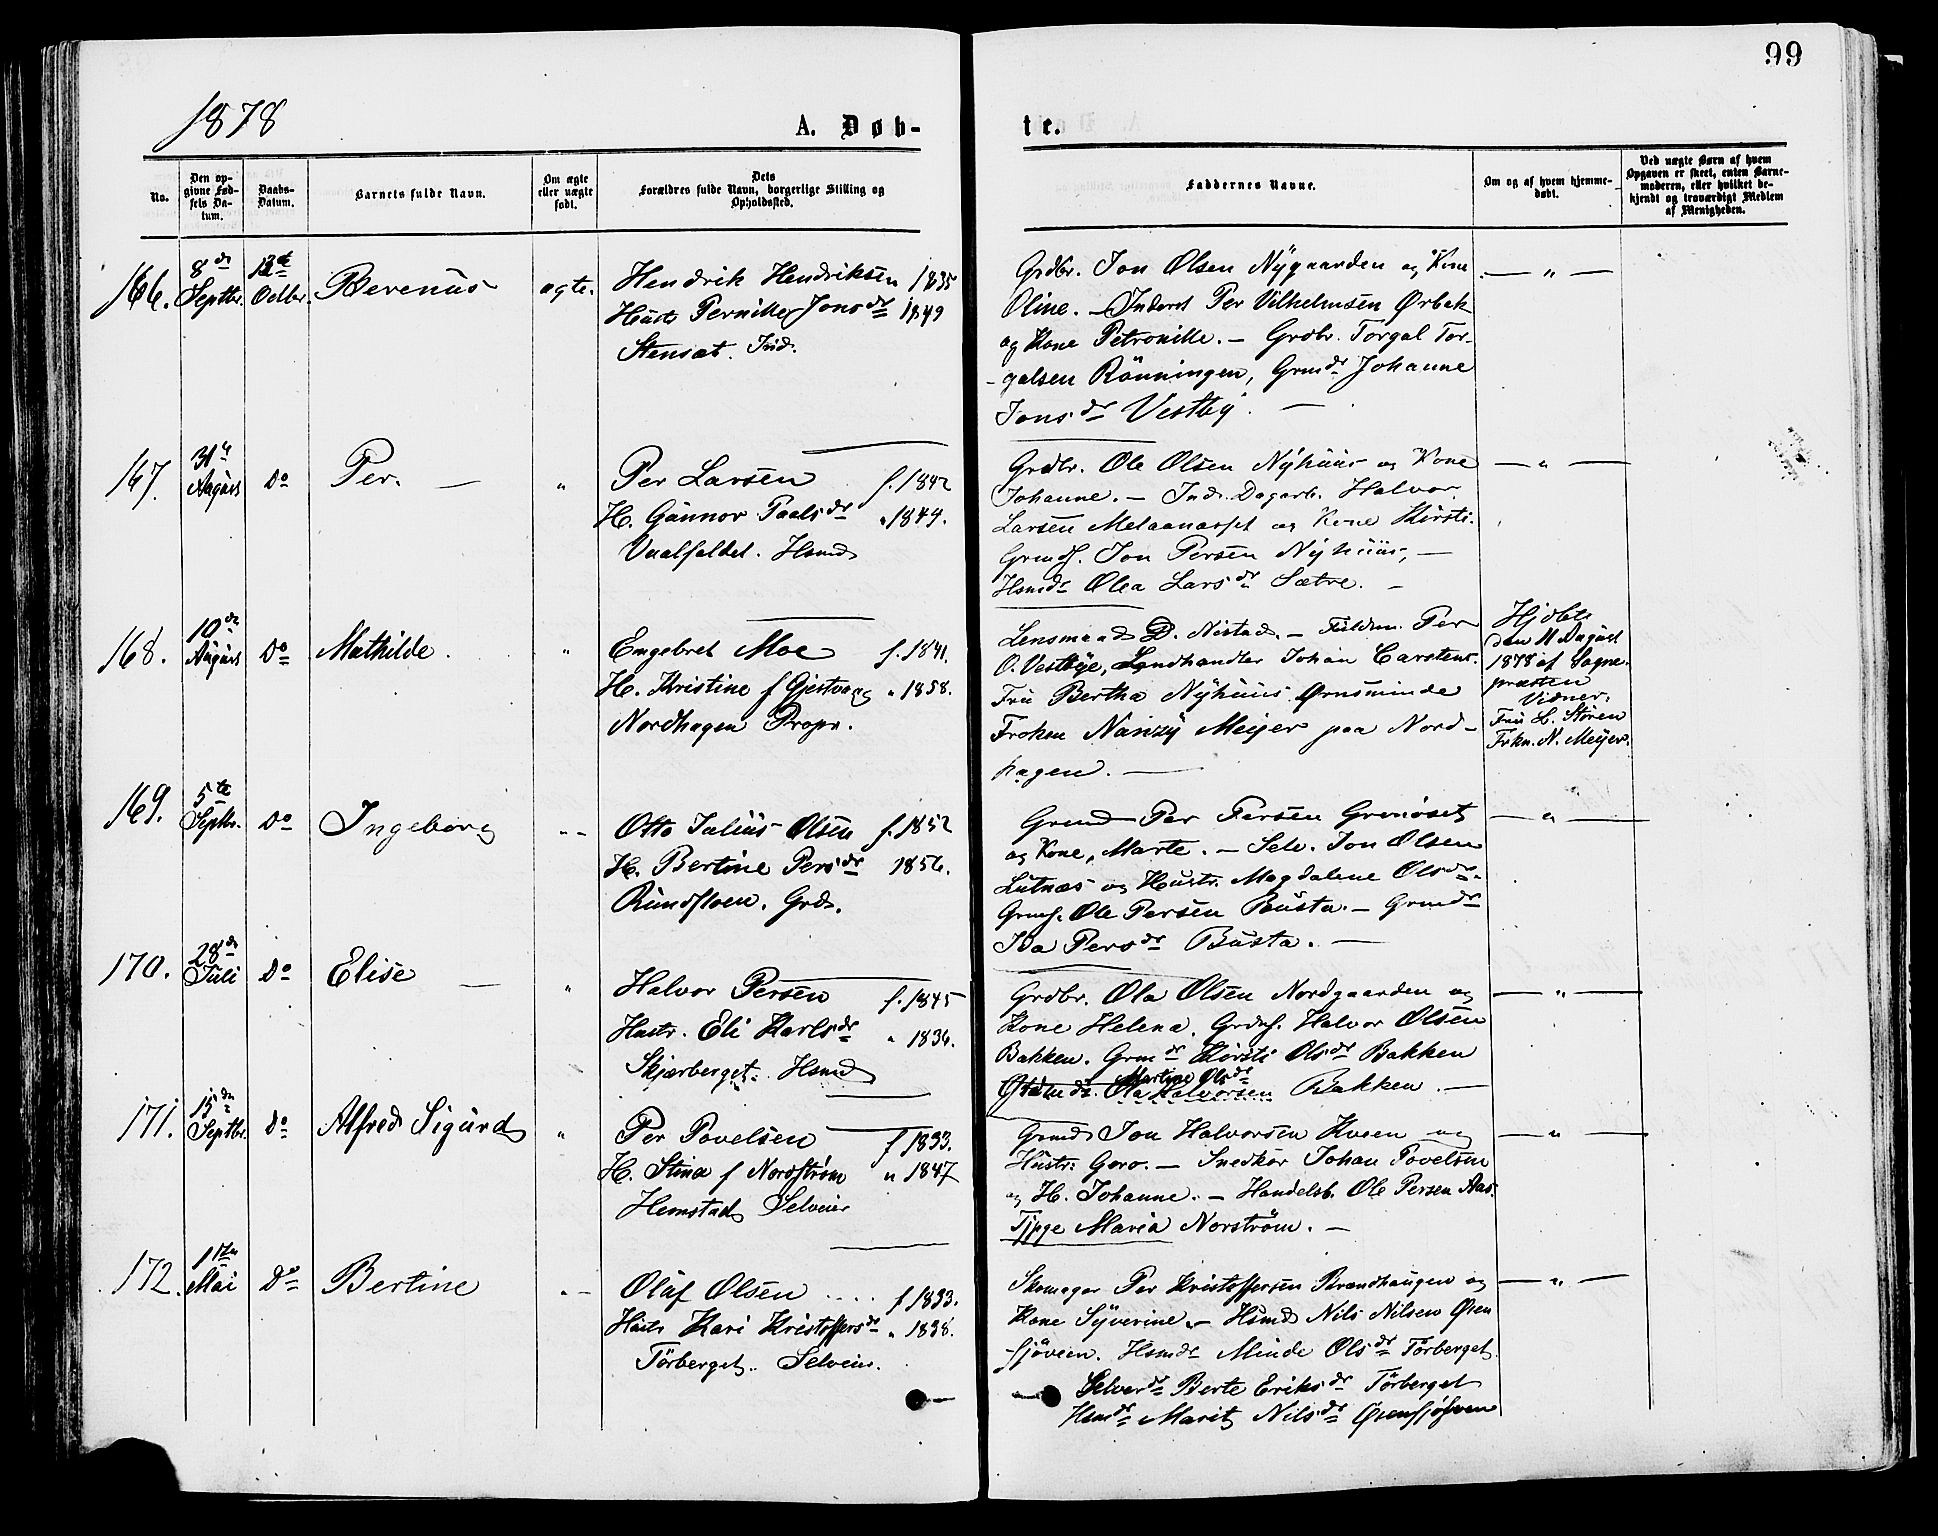 99
1878
A. Døb-
te.
No.
Den op-
givne Fød-
sels Da-
tum.
Daabs-
Datum.
Barnets fulde Navn.
Om ægte
eller uægte
født.
Dets
Forældres fulde Navn, borgerlige Stilling og
Opholdssted.
Faddernes Navne.
Om og af hvem hjemme-
døbt.
Ved uægte Børn af hvem
Opgaven er skeet, enten Barne-
moderen, eller hvilket be-
kjendt og troværdigt Medlem
af Menigheden.
166. 8de Septbr. Octbr. Berenus ægte.
Hendrik Hendriksen 1835
Hustr Pernille Jonsdr 1849
Stensæt. Ind.
Grdbr. Jon Olsen Nygaarden og Kone
Oline. - Inderst Per Vilhelmsen Ørbæk
og Kone Petronille. - Grdbr. Torgal Tor-
galsen Rönningen, Grmdr Johanne
Jonsdr Vestby. -
— " —
167. 31te August Do Per. — "
Per Larsen f. 1842
H. Gunnor Paalsdr " 1849.
Vaalfaldet. Hsmd
Grdbr. Ole Olsen Nyhuus og Kone
Johanne. - Ind. Dagarb. Halvor
Larsen Melaanasset og Kone Kirsti.
Grmds. Jon Persen Nyhuus, -
Hsmdr Olea Larsdr Sætre. -
— " —
168. 10de August Do Mathilde. "
Engebret Moe f. 1841.
H. Kristine f Gjestvang " 1858.
Nordhagen Propr.
Lensmand D. Nestad. - Fuldm. Per
O. Vestbye, Landhandler Johan Carstens.
Fru Bertha Nyhuus Ørnsminde
Frøken Nanzy Meijer paa Nord-
hagen. -
Hjdbt.
den 11 August
1878 af Sogne-
præsten
Vidner.
Fru L. Støren
Frkn. N. Meijer.
169. 5te Septbr. Do Ingeborg "
Otto Julius Olsen f. 1852
H. Bertine Persdr 1856.
Rundfloen. Grd.
Grmd Per Persen Grønøset
og Kone, Marte. - Selv. Jon Olsen
Lutnæs og Hustr. Magdalene Olsdr.
Grmds. Ole Persen Busta. - Grmdr
Ida Persdr Busta. -
— " —
170. 28de Juli Do Elise — "
Halvor Persen f. 1845
Hustr. Eli Karlsdr " 1836.
Skjærberget. Hsmd
Grdbr. Ola Olsen Nordgaarden og
Kone Helena. Grdms. Halvor Olsen
Bakken. Grmdr Kirsti Olsdr Bakken
Martine Olsdr
Grdmds. Ola Halvorsen Bakken. -
— " —
171. 15de Septbr. Do Alfred Sigurd "
Per Povelsen f 1833.
H. Stina f Nordstrøm " 1847
Hemstad Selveier
Grmd Jon Halvorsen Kveen og
Hustr: Goro. - Snedker Johan Povelsen
og H. Johanne. - Handelsb. Ole Persen Aas.
Maria Norström. -
— " —
172. Mai Do Bertine "
Oluf Olsen .... f 1833.
Hustr Kari Kristoffersdr " 1838.
Törberget. Selveier.
Skomager Per Kristoffersen Brandhaugen og
Kone Syverine. - Hsmd Nils Nilsen Øren
sjöveen. Hsmdr Minde Olsdr Törberget
Selverdr Berte Eriksdr Törberget
Hsmdr Marit Nilsdr Ørensjöveen
— " —